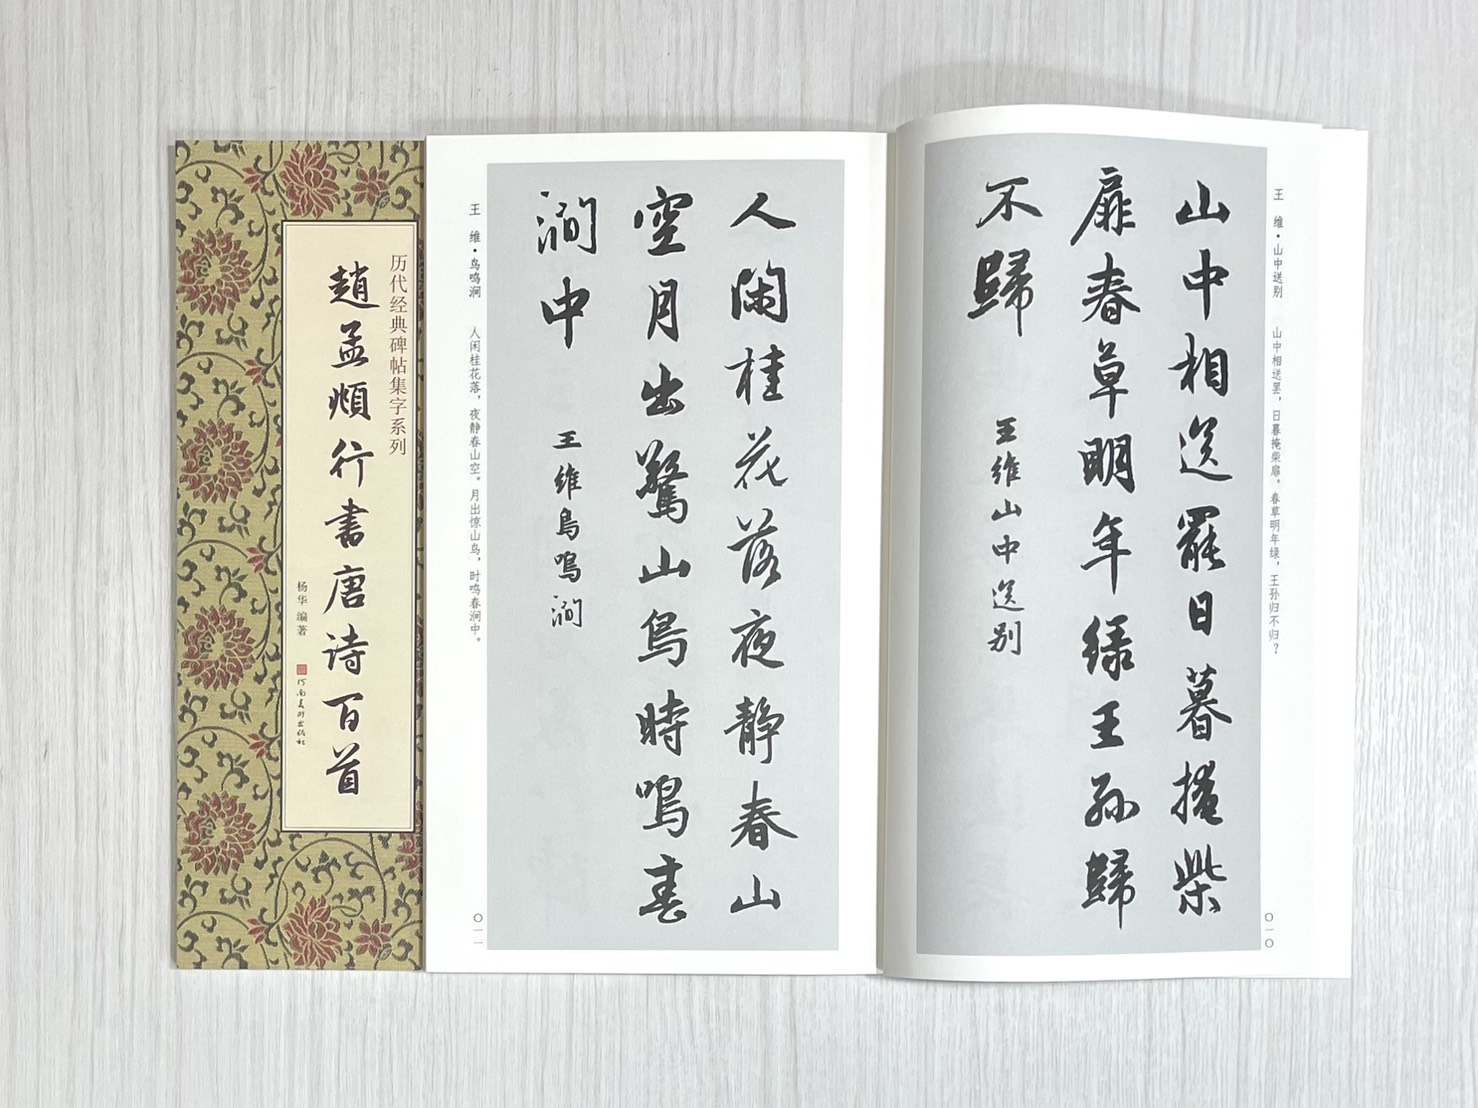 历代经典碑帖集字系列
趙孟頫行書唐诗百首
杨华 编著
河南美术出版社
王 维·山中送别 山中相送罢，日暮掩柴扉。春草明年绿，王孙归不归？
山中相送罷日暮掩柴
扉春草明年綠王孙歸
不歸
王维山中送别
〇一〇
人闲桂花落夜静春山
空月出驚山鳥時鳴春
澗中
王維鳥鳴澗
王 维·鸟鸣涧 人闲桂花落，夜静春山空。月出惊山鸟，时鸣春涧中。
〇一一